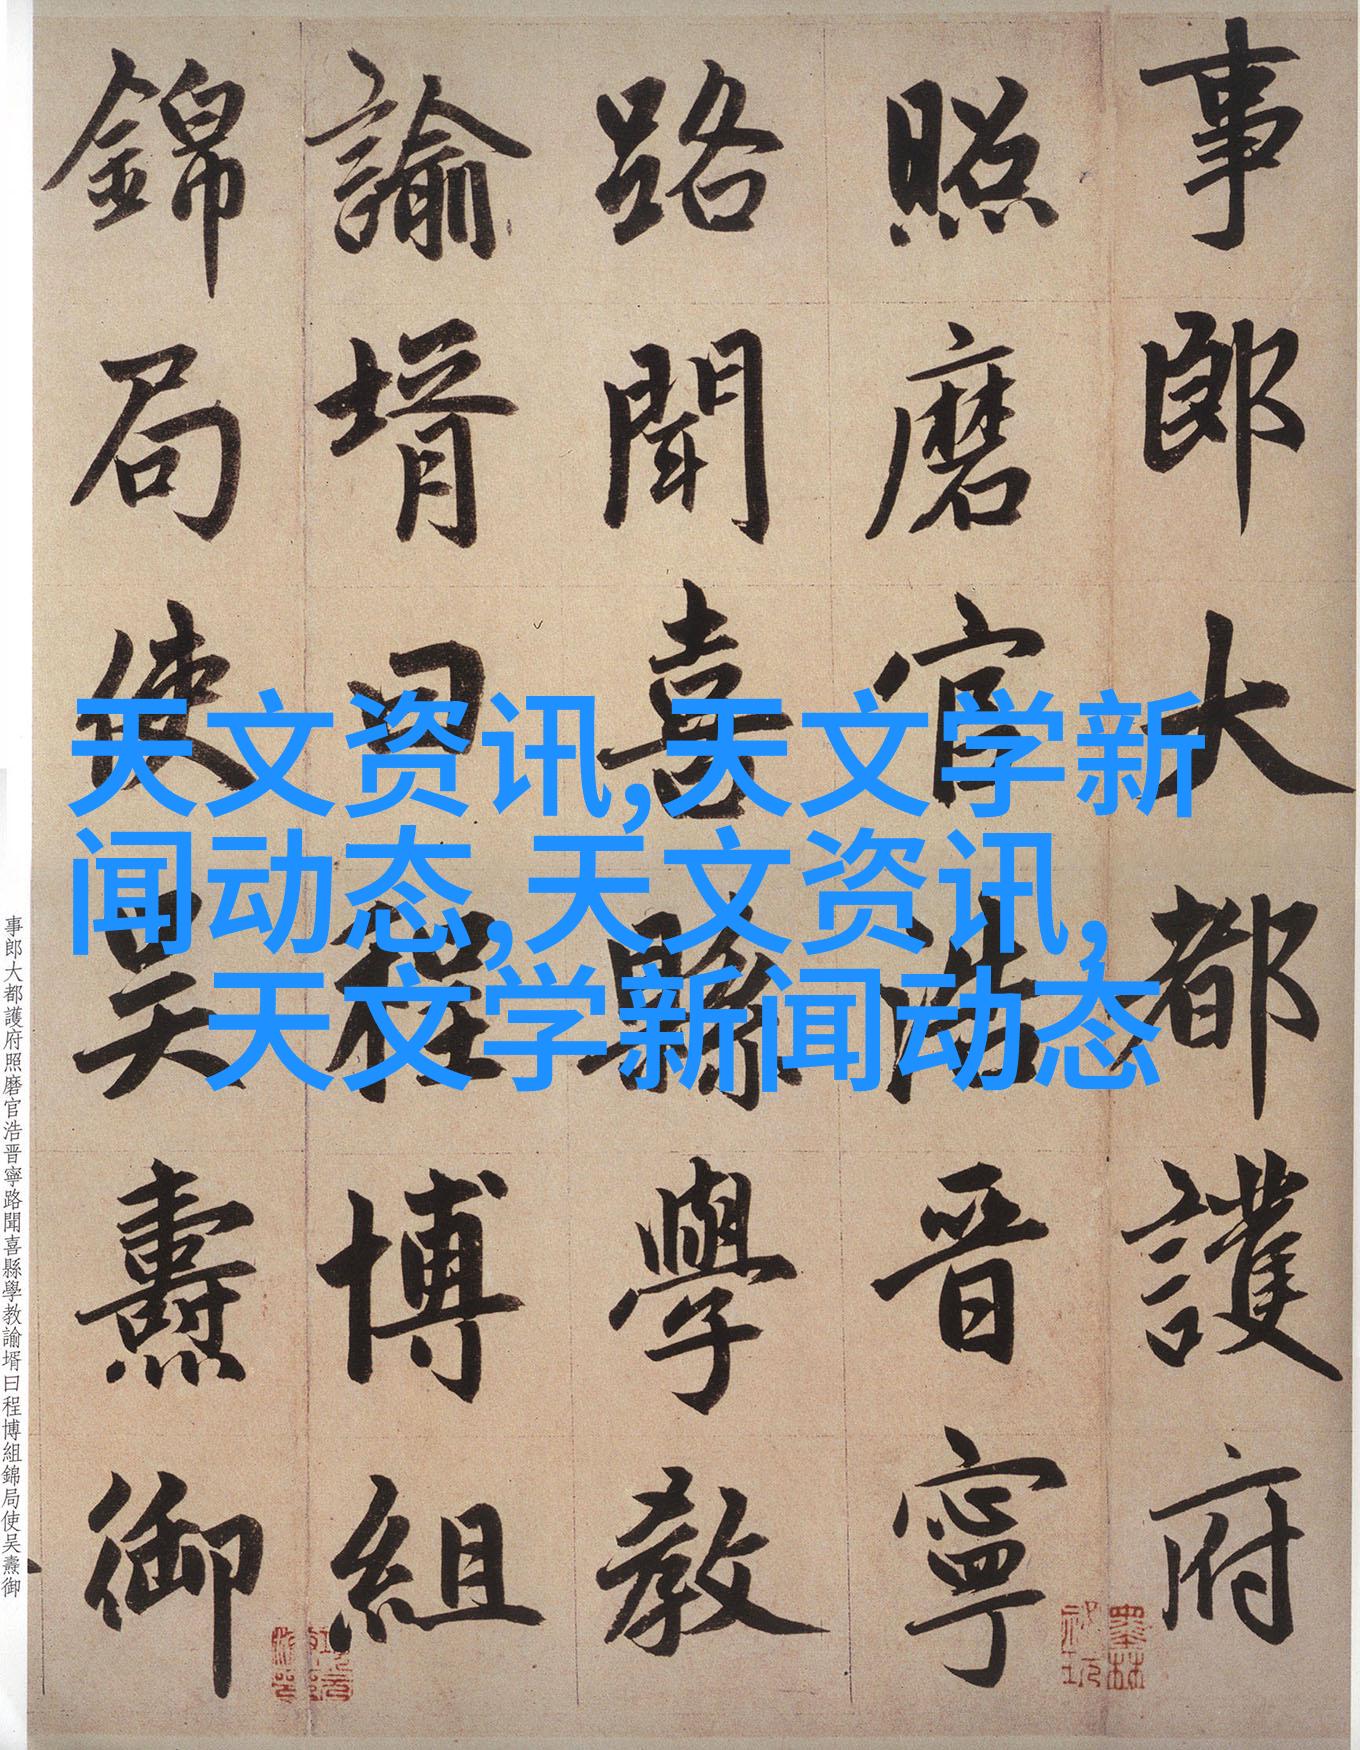 事郎大都護府
照磨官浩晋寧
路聞喜縣學教
諭壻曰程博組
錦局使吴燾御
天文资讯,天文学新
闻动态,天文资讯,
天文学新闻动态
事郎大都護府照磨官浩晋寧路聞喜縣學教諭壻曰程博組錦局使吴燾御